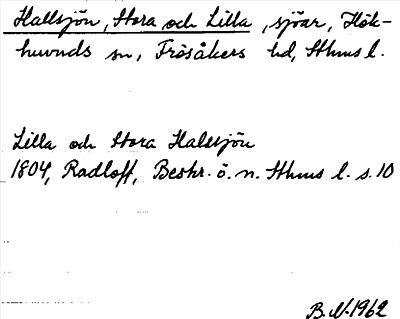 Hallsjön, Stora och Lilla, sjöar, Hök-
huvuds sn, Frösåkers hd, Sthms l.
Lilla och Stora Halsjön
1804, Radloff, Beskr. ö. n. Sthms l. s. 10
B.N. 1962